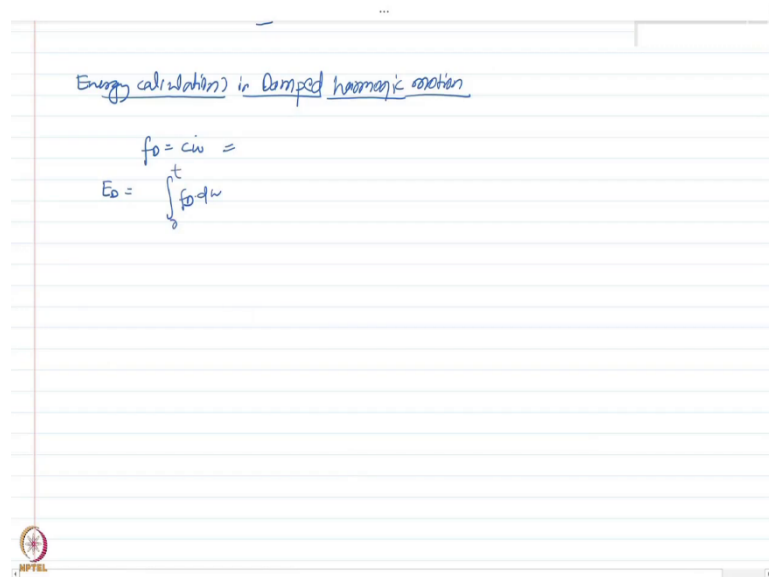 ...
Energy calculations in Damped harmonic motion
f_D = cu̇ =
E_D = ∫₀ᵗ f_D du
NPTEL